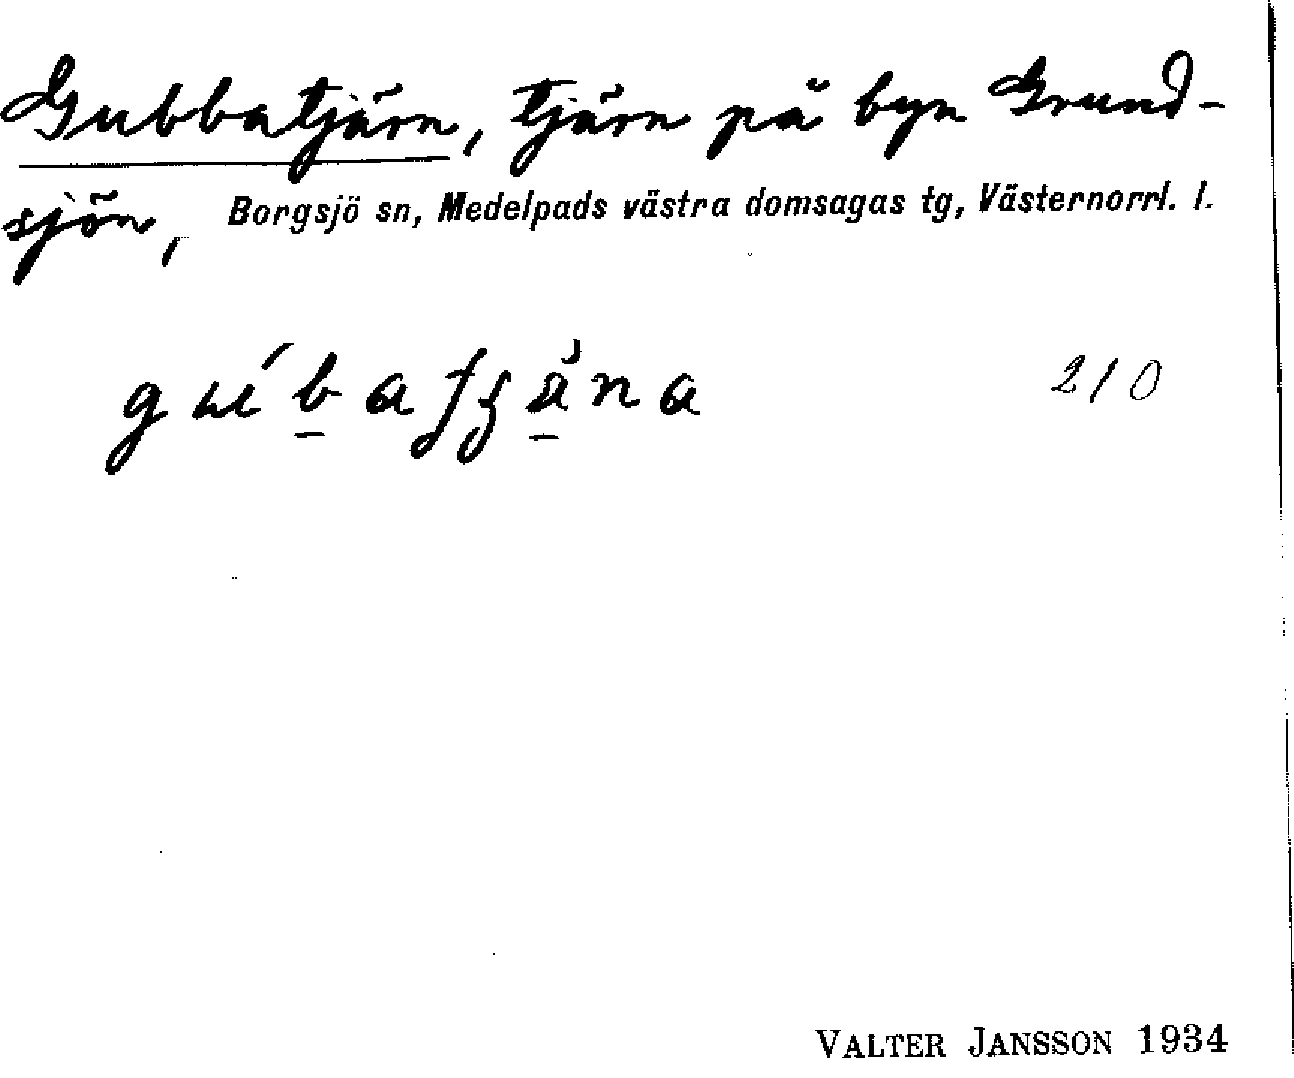 Gubbatjärn, tjärn på byn Grund-
sjön, Borgsjö sn, Medelpads västra domsagas tg, Västernorrl. l.
210
VALTER JANSSON 1934